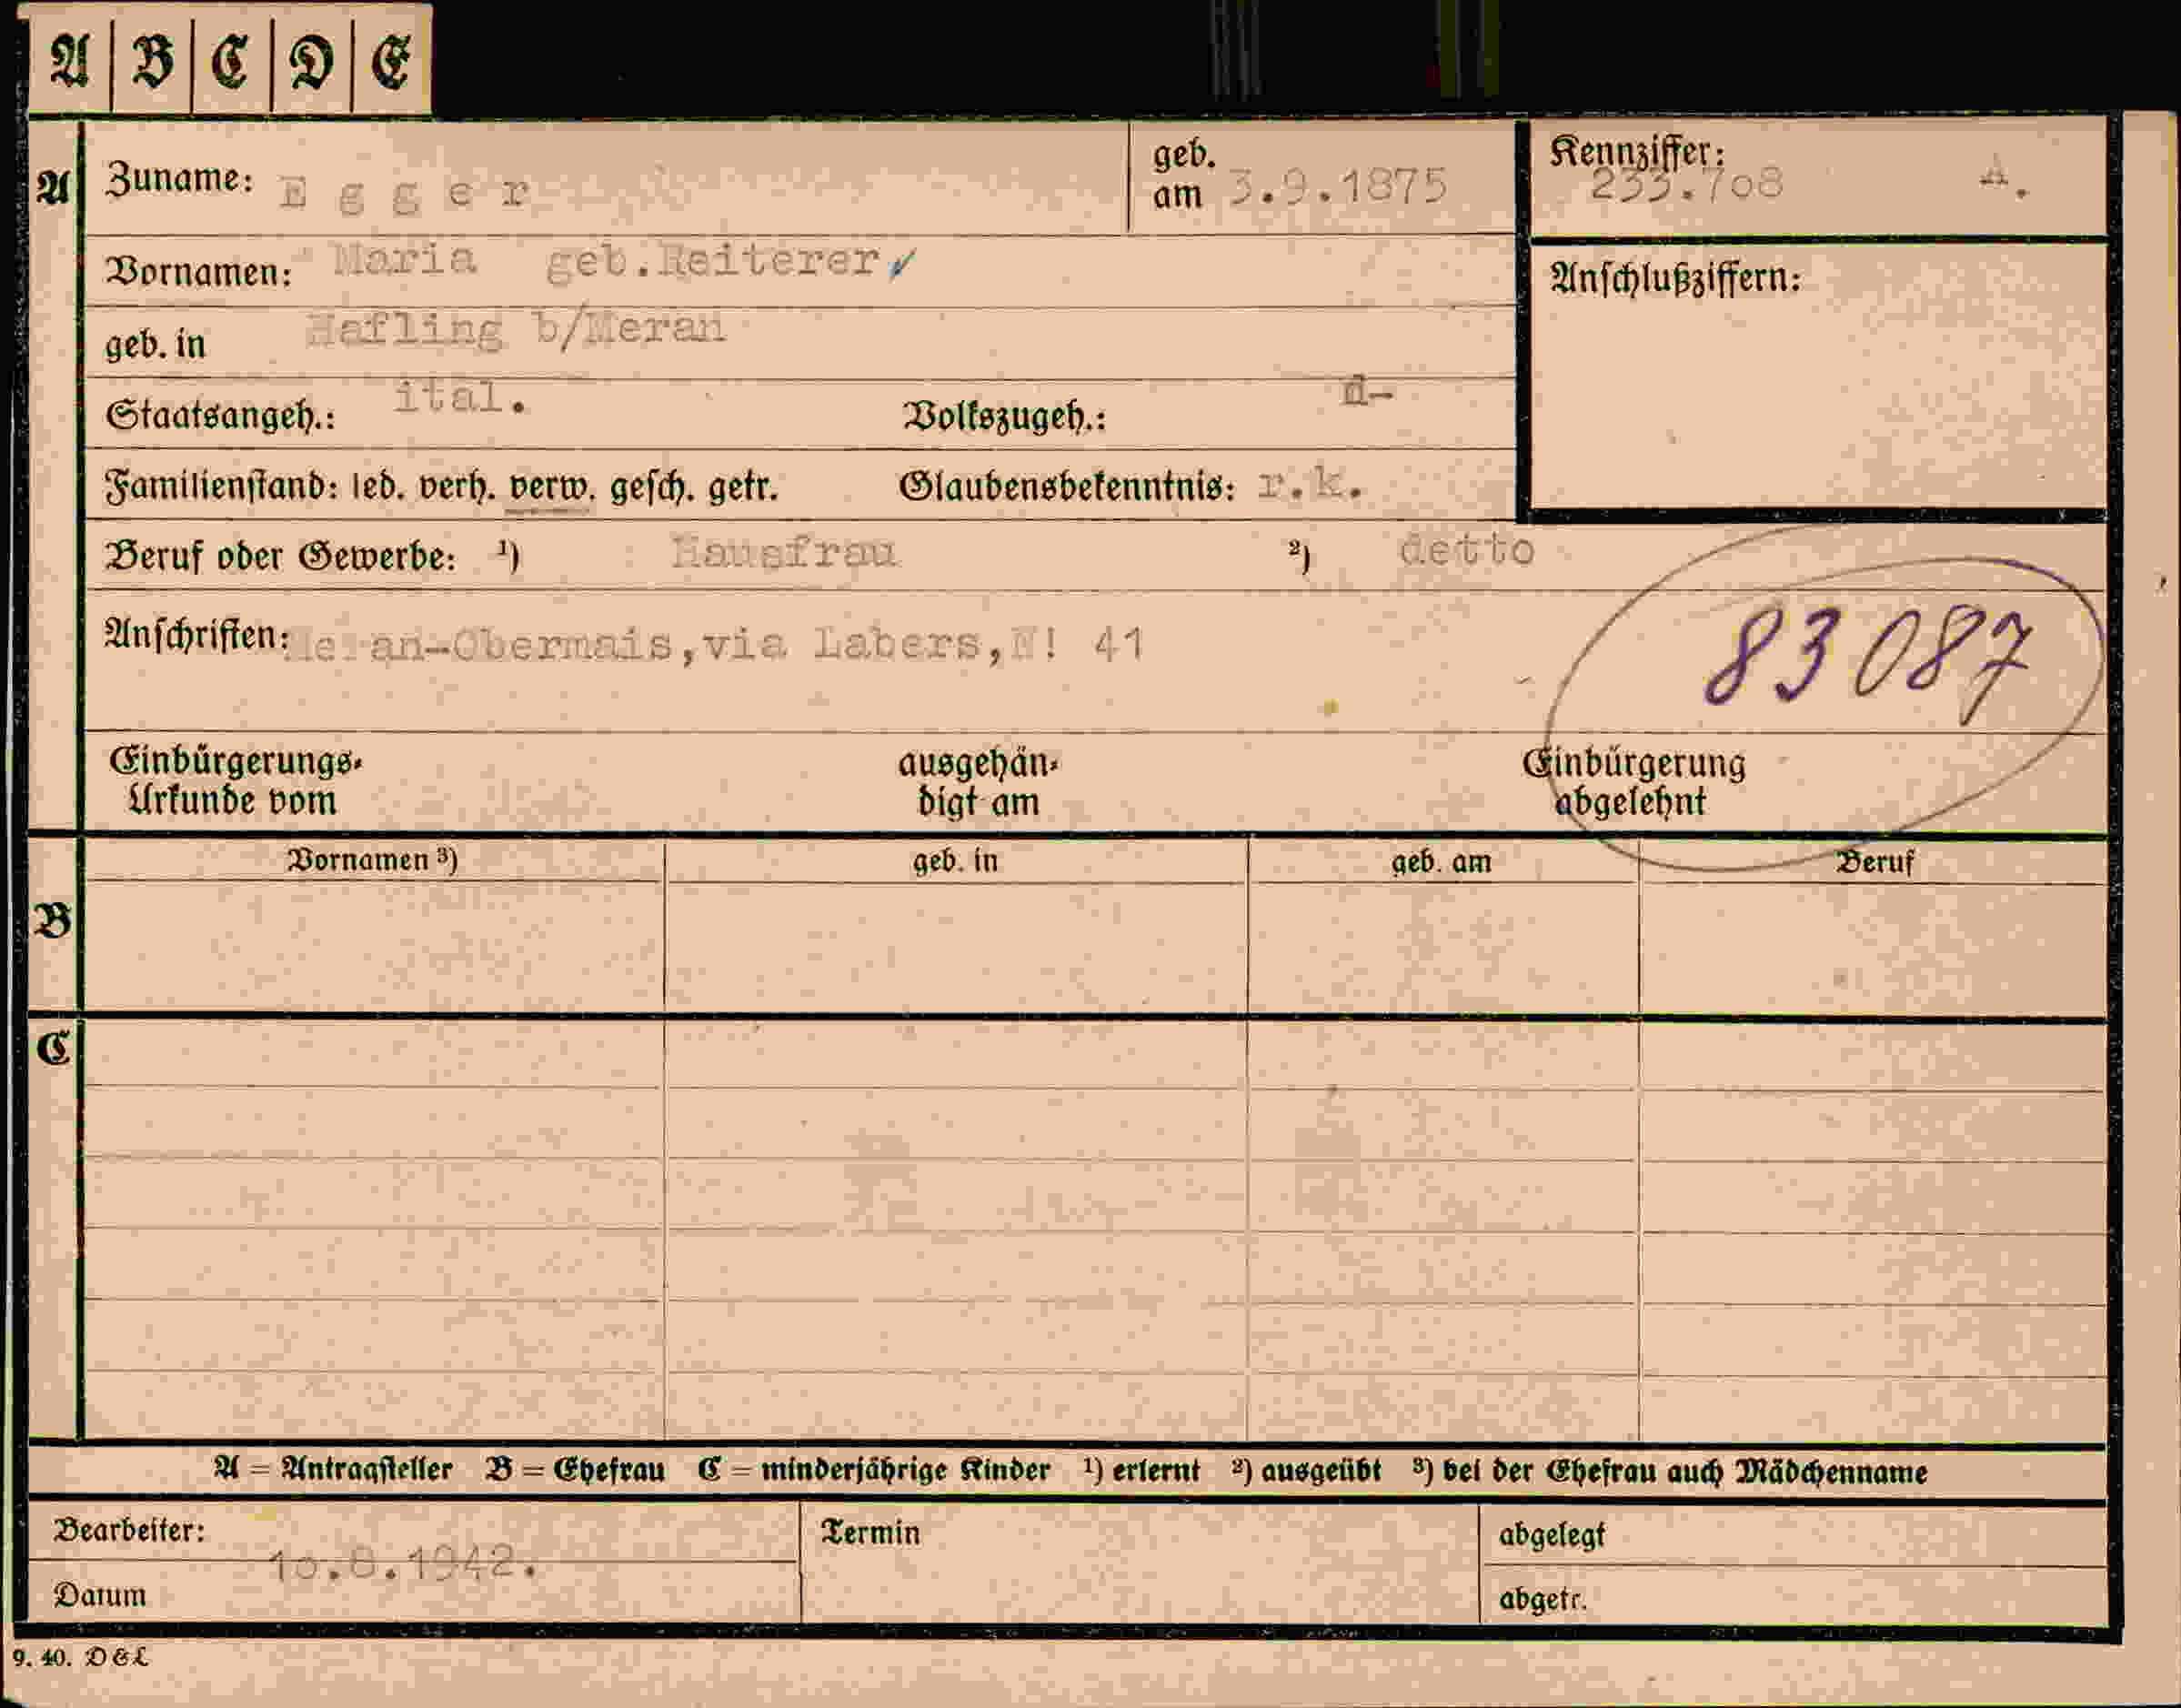 A B C D E
A Zuname: Egger geb. am 3.9.1875 Kennziffer: 233.708 A.
Vornamen: Maria geb.Reiterer
Anschlußziffern:
geb. in Hafling b/Meran
Staatsangeh.: ital. Volkszugeh.: d-
Familienstand: led. verh. verw. gesch. getr. Glaubensbekenntnis: r.k.
Beruf oder Gewerbe: ¹) Hausfrau ²) detto
Anschriften: Meran-Obermais,via Labers,N! 41
83087
Einbürgerungs- ausgehän- Einbürgerung
Urkunde vom digt am abgelehnt
Vornamen ³) geb. in geb. am Beruf
B
C
A = Antragsteller B = Ehefrau C = minderjährige Kinder ¹) erlernt ²) ausgeübt ³) bei der Ehefrau auch Mädchenname
Bearbeiter: Termin abgelegt
10.8.1942.
Datum abgetr.
9. 40. D & L